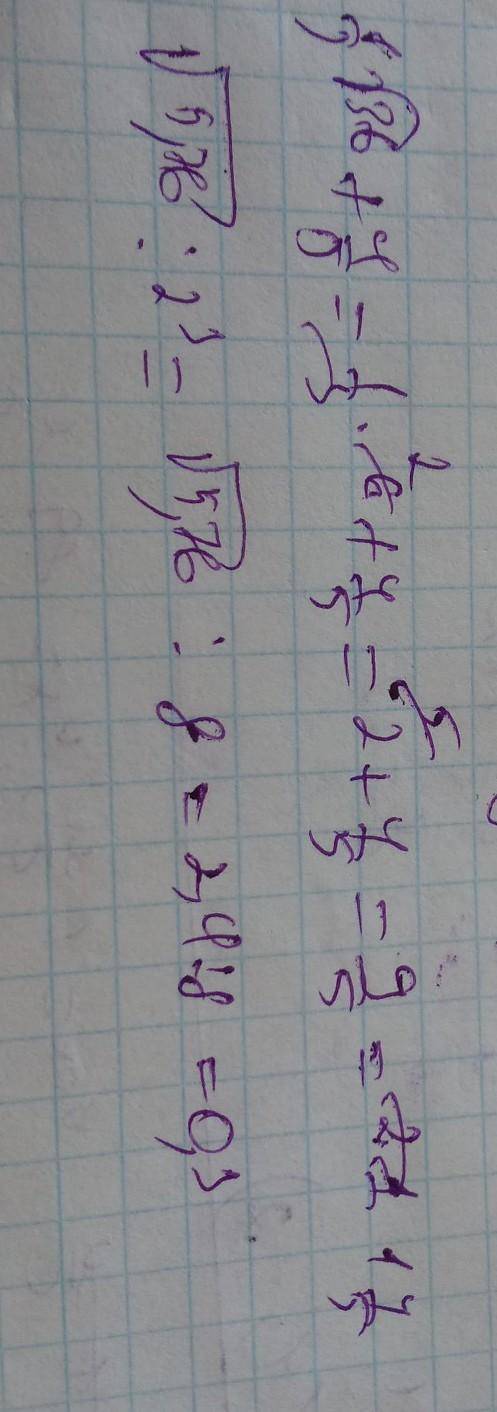 1/3 √36 + 4/5 = 1/3 · 6² + 4/5 = 2⁵ + 4/5 = 9/5 = 1 4/5
√5,76 : 2³ = √5,76 : 8 = 2,4:8 = 0,3